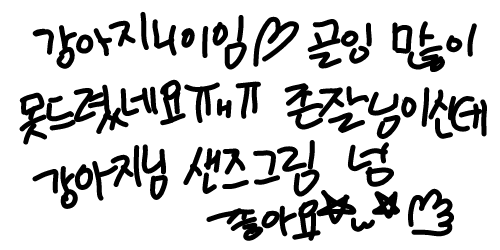 강아지니이임♡ 골잉 많이
못드렸네요ㅠㅐㅠ 존잘님이신데
강아지님 샌즈그림 넘
죻아요☆ᆢ☆ ♡